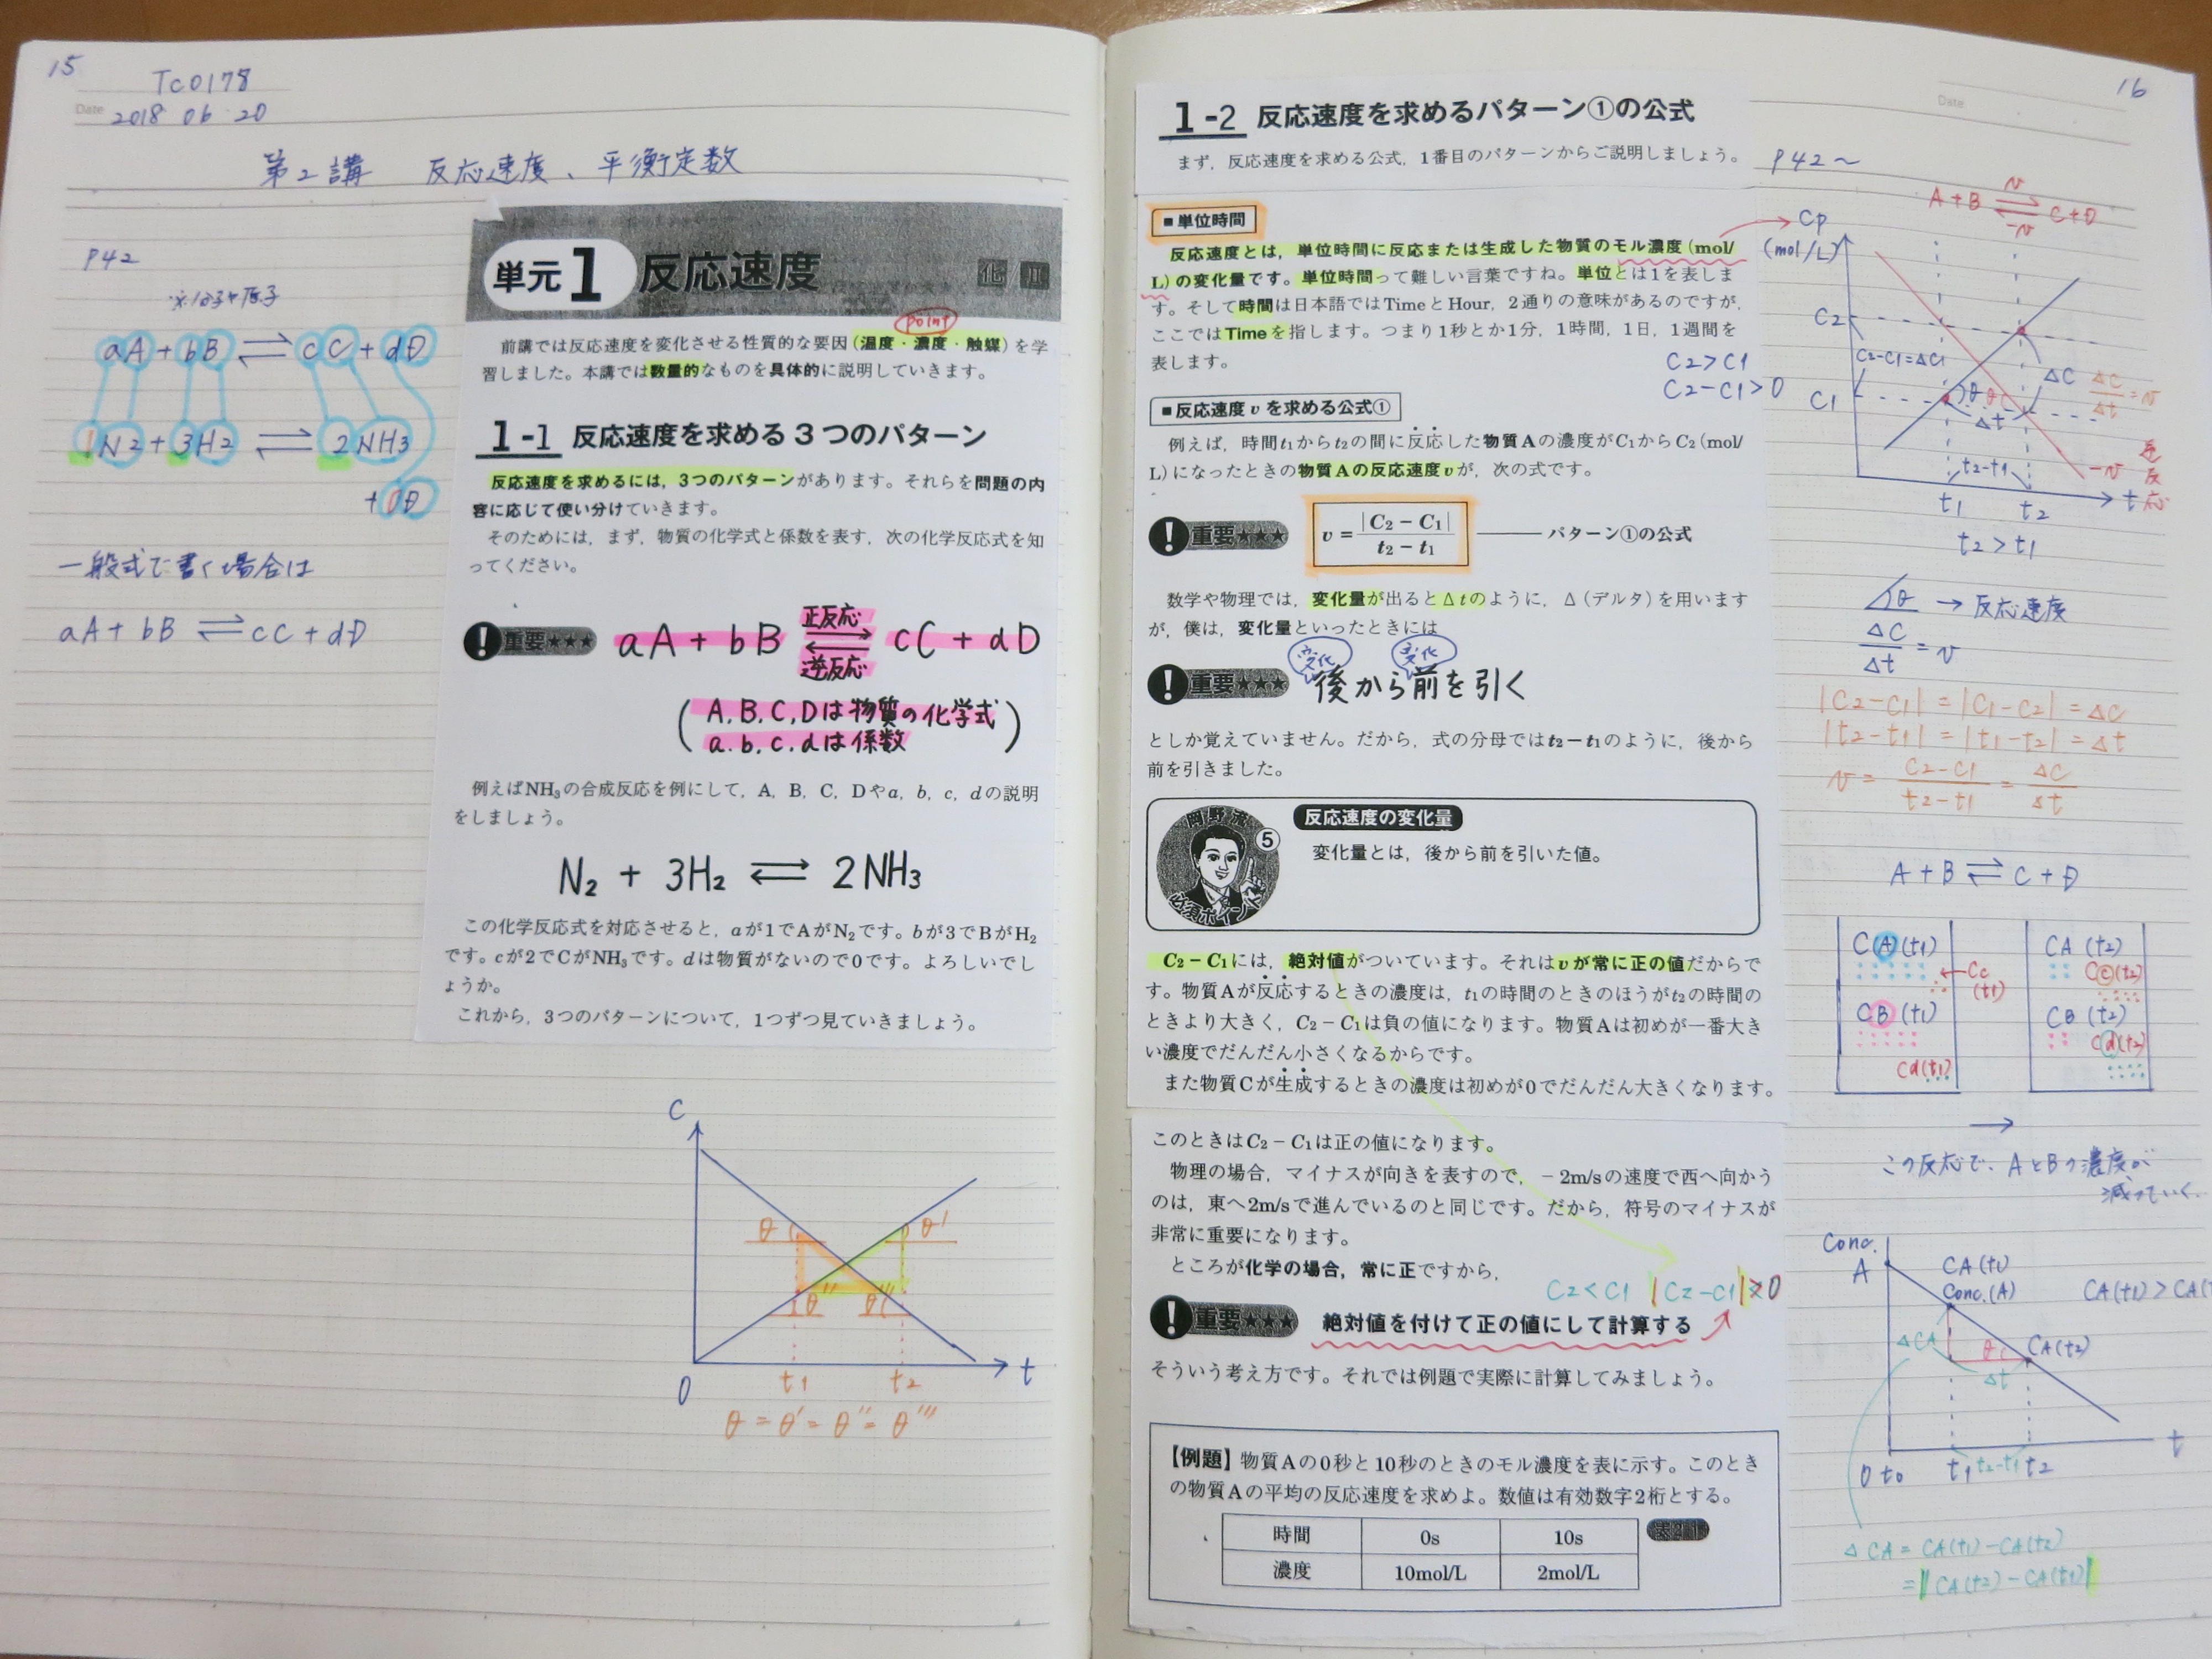 15
Tc0178
Date 2018 06 20
第2講 反応速度、平衡定数
P42
aA + bB ⇌ cC + dD
1N2 + 3H2 ⇌ 2NH3
+ 0D
一般式で書く場合は
aA + bB ⇌ cC + dD
単元1 反応速度 化 II
point
前講では反応速度を変化させる性質的な要因(温度・濃度・触媒)を学
習しました。本講では数量的なものを具体的に説明していきます。
1-1 反応速度を求める3つのパターン
反応速度を求めるには，3つのパターンがあります。それらを問題の内
容に応じて使い分けていきます。
そのためには，まず，物質の化学式と係数を表す，次の化学反応式を知
ってください。
! 重要★★★ aA + bB 正反応 ⇌ 逆反応 cC + dD
(A.B.C.Dは物質の化学式
a.b.c.dは係数)
例えばNH₃の合成反応を例にして，A，B，C，Dやa，b，c，dの説明
をしましょう。
N₂ + 3H₂ ⇌ 2NH₃
この化学反応式を対応させると，aが1でAがN₂です。bが3でBがH₂
です。cが2でCがNH₃です。dは物質がないので0です。よろしいでし
ょうか。
これから，3つのパターンについて，1つずつ見ていきましょう。
C
θ θ'
θ'' θ'''
0 t1 t2 t
θ = θ' = θ'' = θ'''
16
Date
1-2 反応速度を求めるパターン①の公式
まず，反応速度を求める公式，1番目のパターンからご説明しましょう。
P42～
■単位時間
反応速度とは，単位時間に反応または生成した物質のモル濃度(mol/
L)の変化量です。単位時間って難しい言葉ですね。単位とは1を表しま
す。そして時間は日本語ではTimeとHour，2通りの意味があるのですが，
ここではTimeを指します。つまり1秒とか1分，1時間，1日，1週間を
表します。
C2>C1
C2-C1>0
■反応速度vを求める公式①
例えば，時間t₁からt₂の間に反応した物質Aの濃度がC₁からC₂(mol/
L)になったときの物質Aの反応速度vが，次の式です。
! 重要★★★ v = |C₂ − C₁| / t₂ − t₁ —— パターン①の公式
数学や物理では，変化量が出るとΔtのように，Δ(デルタ)を用います
が，僕は，変化量といったときには
変化 変化
! 重要★★★ 後から前を引く
としか覚えていません。だから，式の分母ではt₂−t₁のように，後から
前を引きました。
岡野流 ⑤ 必須ポイント
反応速度の変化量
変化量とは，後から前を引いた値。
C₂−C₁には，絶対値がついています。それはvが常に正の値だからで
す。物質Aが反応するときの濃度は，t₁の時間のときのほうがt₂の時間の
ときより大きく，C₂−C₁は負の値になります。物質Aは初めが一番大き
い濃度でだんだん小さくなるからです。
また物質Cが生成するときの濃度は初めが0でだんだん大きくなります。
このときはC₂−C₁は正の値になります。
物理の場合，マイナスが向きを表すので，−2m/sの速度で西へ向かう
のは，東へ2m/sで進んでいるのと同じです。だから，符号のマイナスが
非常に重要になります。
ところが化学の場合，常に正ですから，
C2<C1
! 重要★★★ 絶対値を付けて正の値にして計算する
そういう考え方です。それでは例題で実際に計算してみましょう。
【例題】物質Aの0秒と10秒のときのモル濃度を表に示す。このとき
の物質Aの平均の反応速度を求めよ。数値は有効数字2桁とする。
時間 0s 10s
濃度 10mol/L 2mol/L
表2-1
A+B v ⇌ -v C+D
Cp
(mol/L)
C2
C2-C1=ΔC1
C1
θ
ΔC ΔC/Δt = v
Δt
t2-t1
-v 逆反応
t1 t2 t
t2>t1
θ → 反応速度
ΔC/Δt = v
|C2-C1| = |C1-C2| = ΔC
|t2-t1| = |t1-t2| = Δt
v = C2-C1/t2-t1 = ΔC/Δt
A + B ⇌ C + D
C(A)(t1) CA (t2)
←Cc(t1) Cc(t2)
CB(t1) CB (t2)
Cd(t1) Cd(t2)
→
この反応で、AとBの濃度が
減っていく
Conc.
A
CA(t1)
Conc.(A)
ΔCA θ CA(t2)
Δt
0 t0 t1 t2-t1 t2 t
ΔCA = CA(t1)-CA(t2)
= |CA(t2)-CA(t1)|